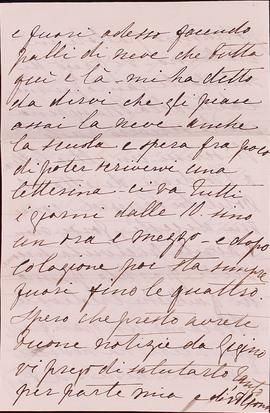 e fuori adesso facendo
palli di neve che butta
quì e là - mi ha detto
da dirvi che gli piace
assai la neve anche
la scuola e spera fra poco
di poter scrivervi una
letterina - ci va tutti
i giorni dalle 10. sino
un ora e mezzo - e dopo
colazione poi sta sempre
fuori fino le quattro.
Spero che presto avrete
buone notizie da Gigino
vi prego di salutarlo tanto
per parte mia e di